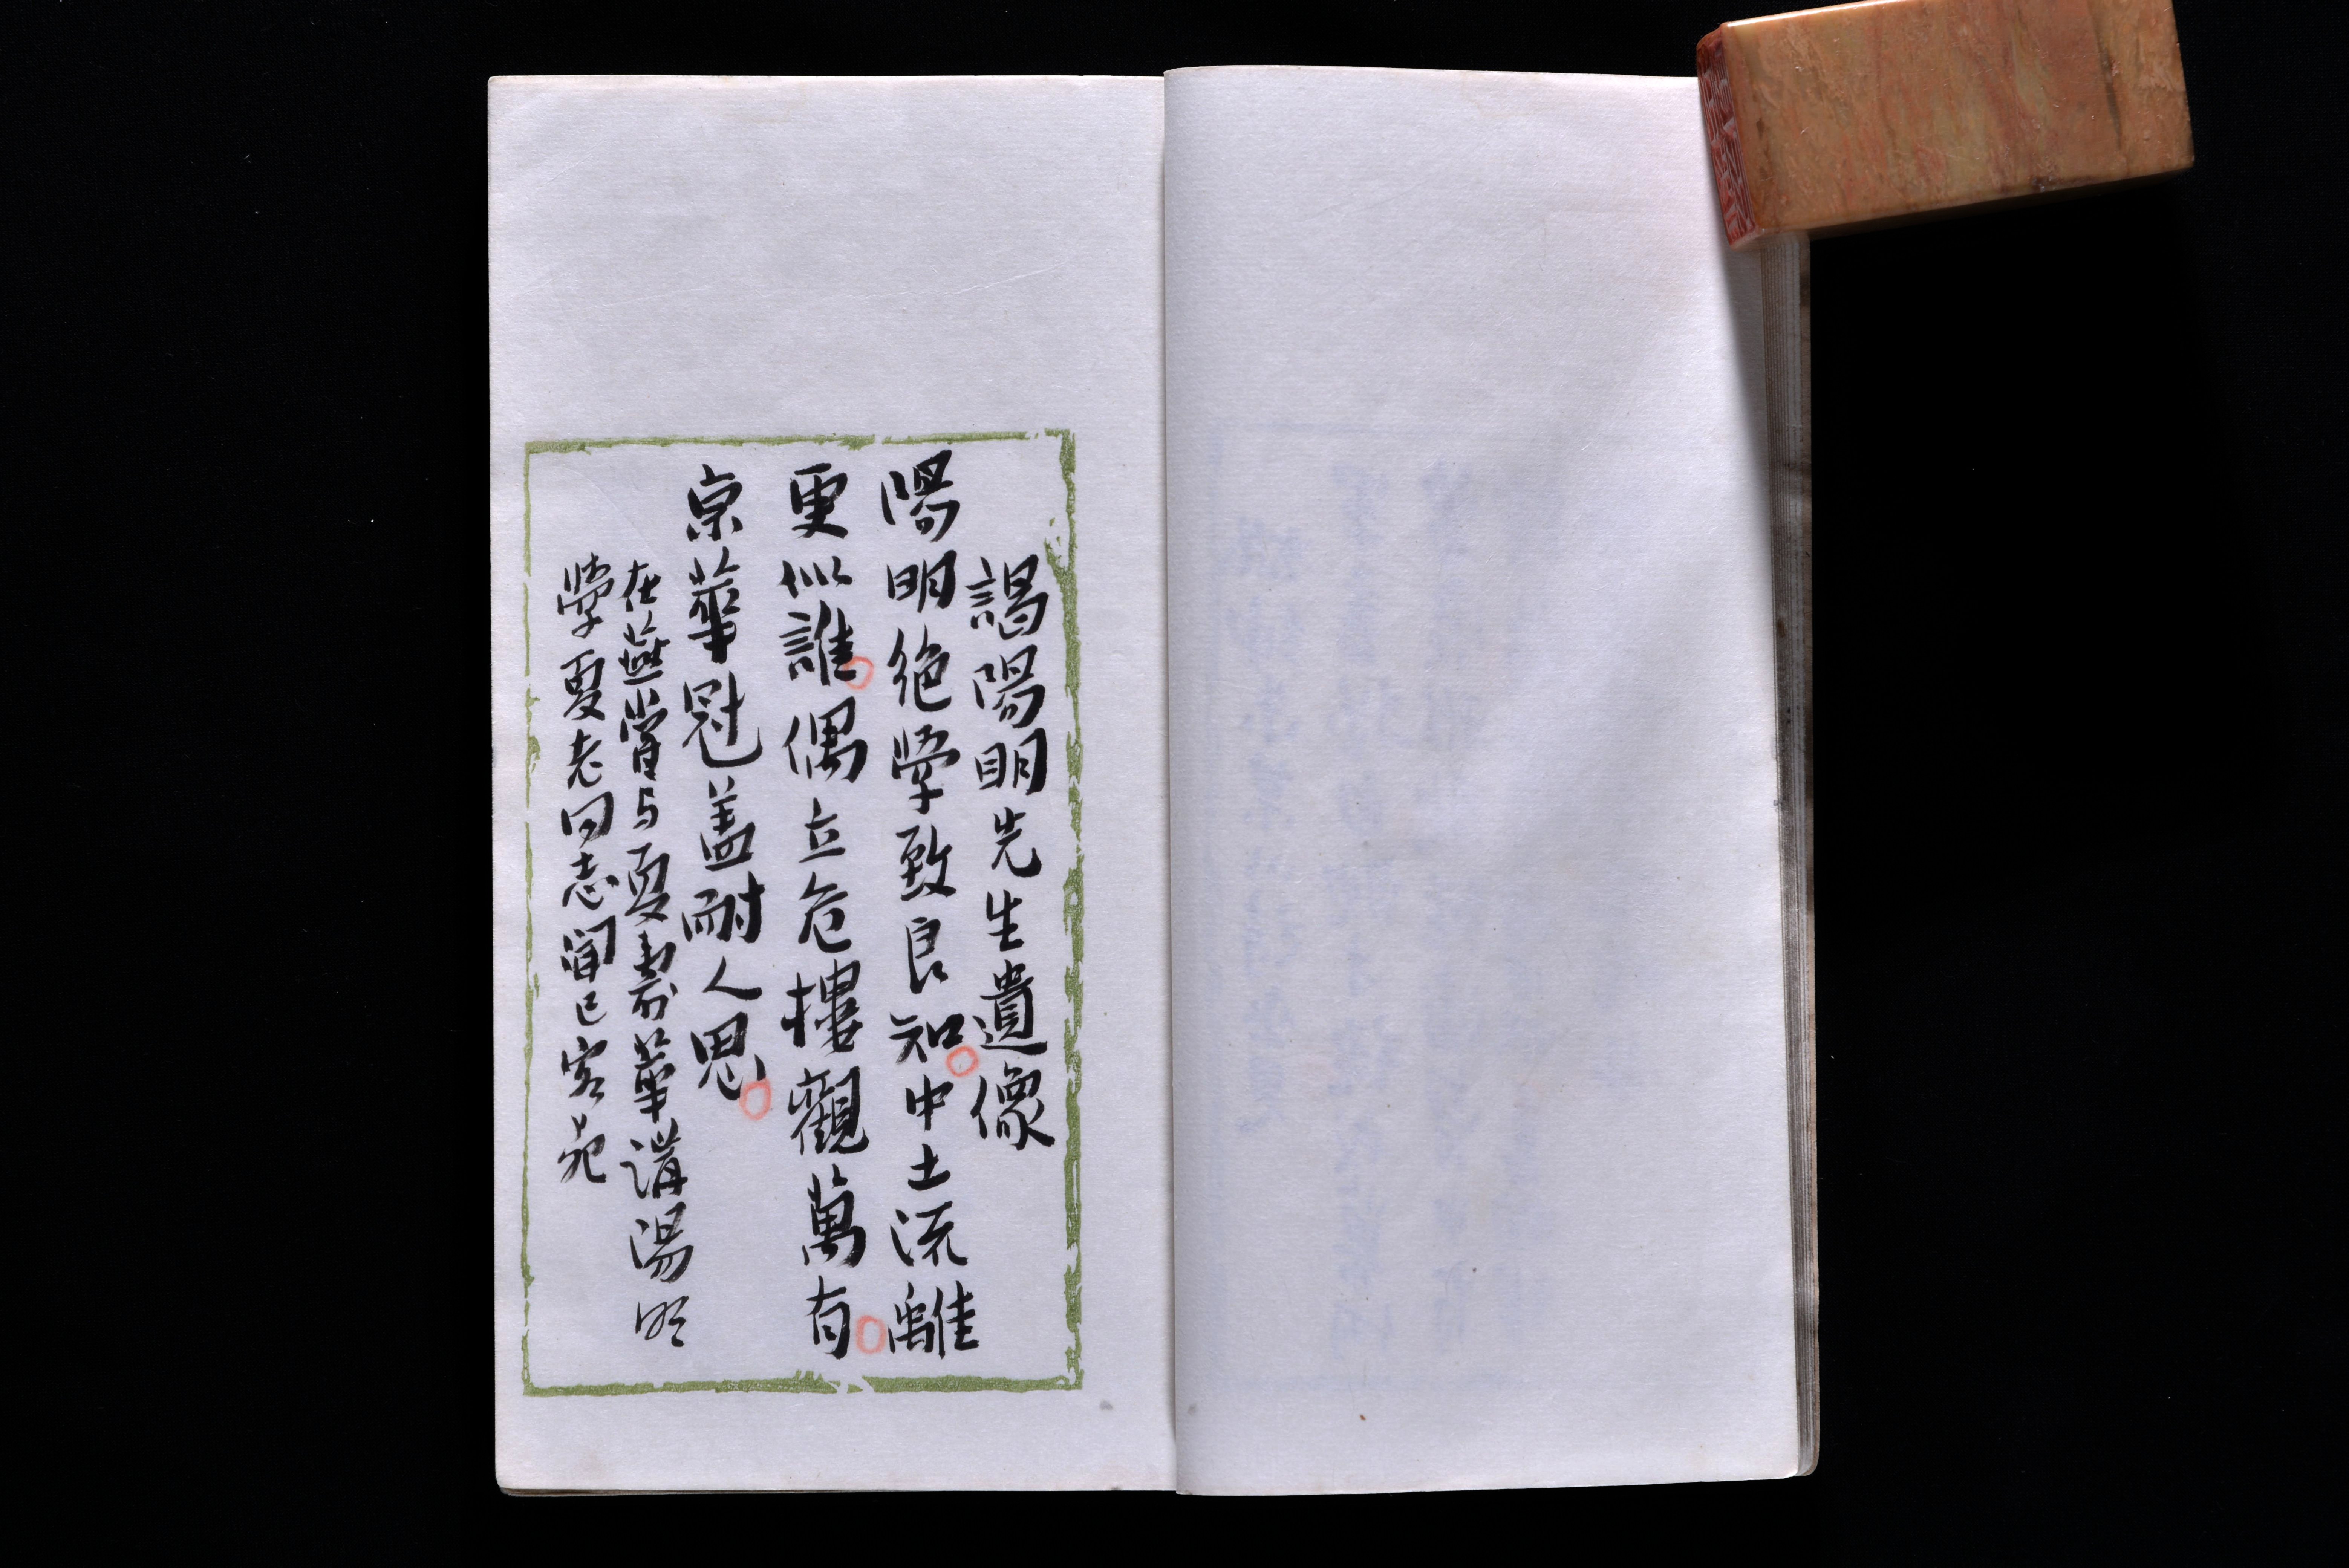 謁陽明先生遺像
陽明絶學致良知中土流離
更似誰偶立危樓觀萬有
京華冠蓋耐人思
在燕嘗与夏壽華講陽明
學夏老同志聞已客死